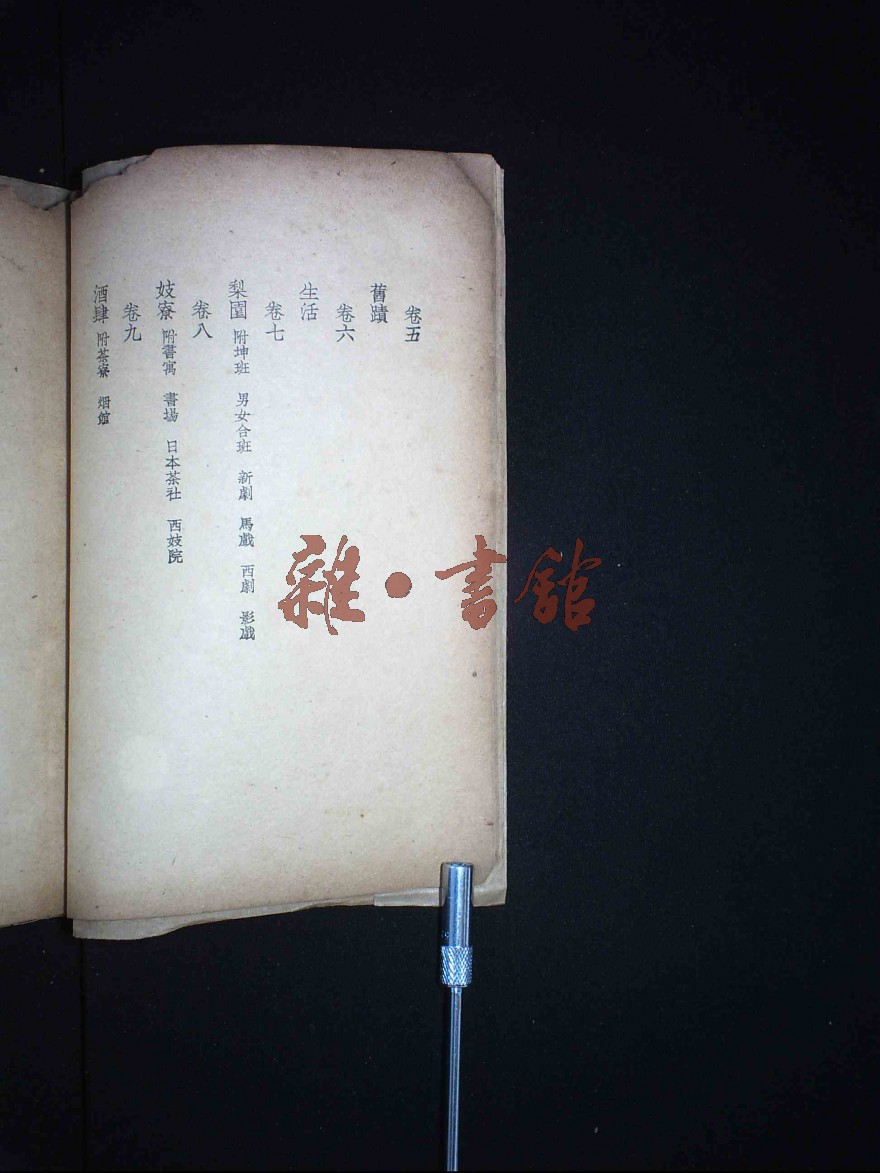 卷五
舊蹟
卷六
生活
卷七
梨園 附坤班 男女合班 新劇 馬戲 西劇 影戲
卷八
妓寮 附書寓 書場 日本茶社 西妓院
卷九
酒肆 附茶寮 烟館
雜·書館